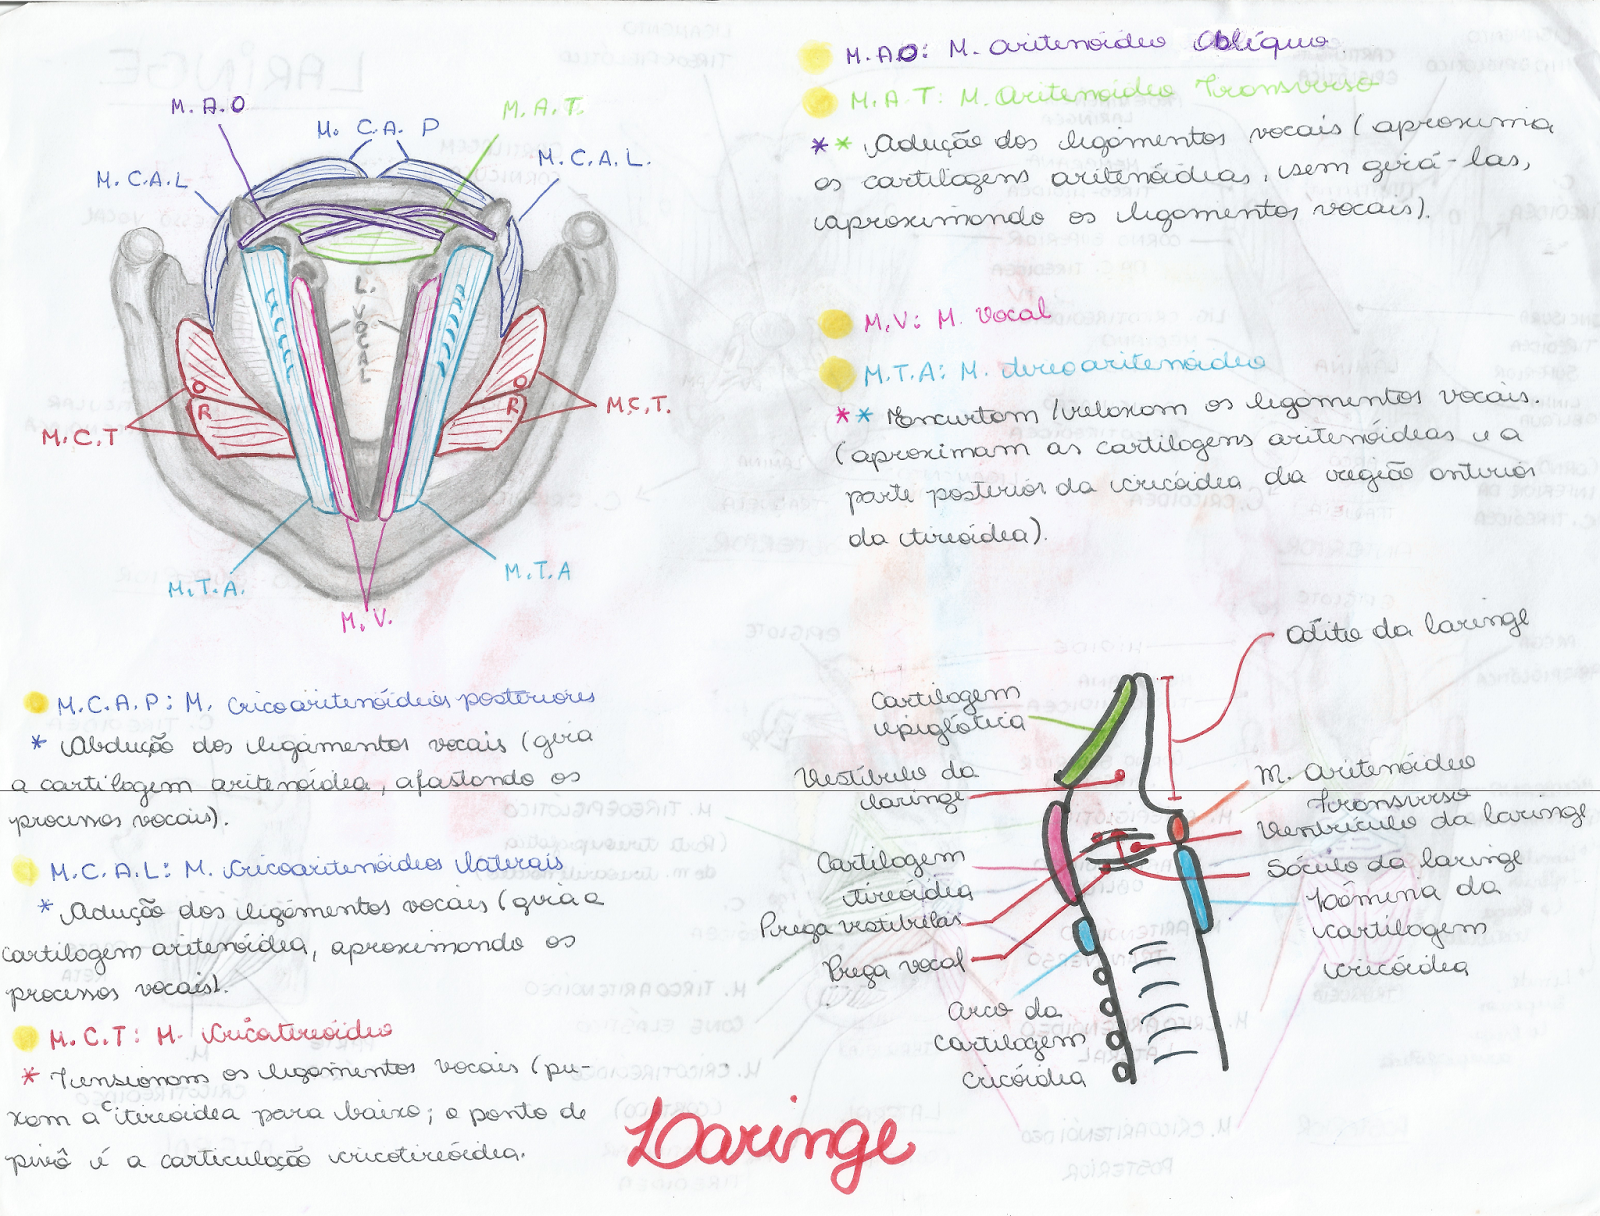 M.A.O
M. C. A. P
M.A.T.
M.C.A.L
M.C.A.L.
L. VOCAL
O
R
O
R
M.C.T
M.C.T.
M.T.A.
M.V.
M.T.A
M.A.O: M. aritenóideo oblíquo.
M.A.T: M. Aritenóideo Transverso
** Adução dos ligamentos vocais (aproxima
as cartilagens aritenóideas, sem girá-las,
aproximando os ligamentos vocais).
M.V: M. Vocal
M.T.A: M. tireoaritenóideo
** Encurtam/relaxam os ligamentos vocais.
(aproximam as cartilagens aritenóideas e a
parte posterior da cricóidea da região anterior
da tireóidea).
M.C.A.P: M. cricoaritenóideos posteriores
* Abdução dos ligamentos vocais (gira
a cartilagem aritenóidea, afastando os
processos vocais).
M.C.A.L: M. cricoaritenóideos laterais
* Adução dos ligamentos vocais (gira a
cartilagem aritenóidea, aproximando os
processos vocais).
M.C.T: M. cricotireóideo
* Tensionam os ligamentos vocais (pu-
xam a c tireóidea para baixo; o ponto de
pivô é a carticulação cricotireóidea.
Ádito da laringe
Cartilagem
epiglótica
Vestíbulo da
laringe
M. Aritenóideo
transverso
Ventrículo da laringe
Cartilagem
tireóidia
Sáculo da laringe
Prega vestibular
Lâmina da
cartilagem
cricóidia
Prega vocal
Arco da
cartilagem
cricóidia
Laringe